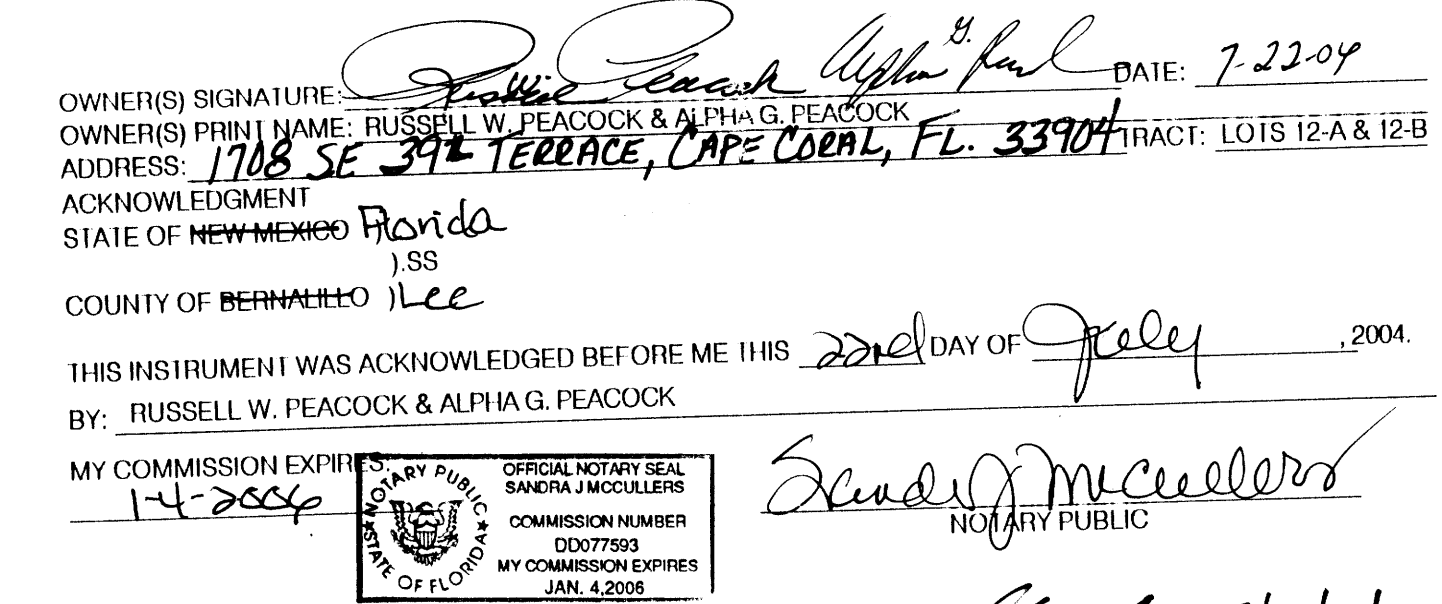 OWNER(S) SIGNATURE: Russell W Peacock Alpha G. Peacock DATE: 7-22-04
OWNER(S) PRINT NAME: RUSSELL W. PEACOCK & ALPHA G. PEACOCK
ADDRESS: 1708 SE 39th TERRACE, CAPE CORAL, FL. 33904 TRACT: LOTS 12-A & 12-B
ACKNOWLEDGMENT
STATE OF NEW MEXICO Florida
).SS
COUNTY OF BERNALILLO ) Lee
THIS INSTRUMENT WAS ACKNOWLEDGED BEFORE ME THIS 22nd DAY OF July, 2004.
BY: RUSSELL W. PEACOCK & ALPHA G. PEACOCK
MY COMMISSION EXPIRES:
1-4-2006
NOTARY PUBLIC
STATE OF FLORIDA
OFFICIAL NOTARY SEAL
SANDRA J MCCULLERS
COMMISSION NUMBER
DD077593
MY COMMISSION EXPIRES
JAN. 4,2006
Sandra J McCullers
NOTARY PUBLIC